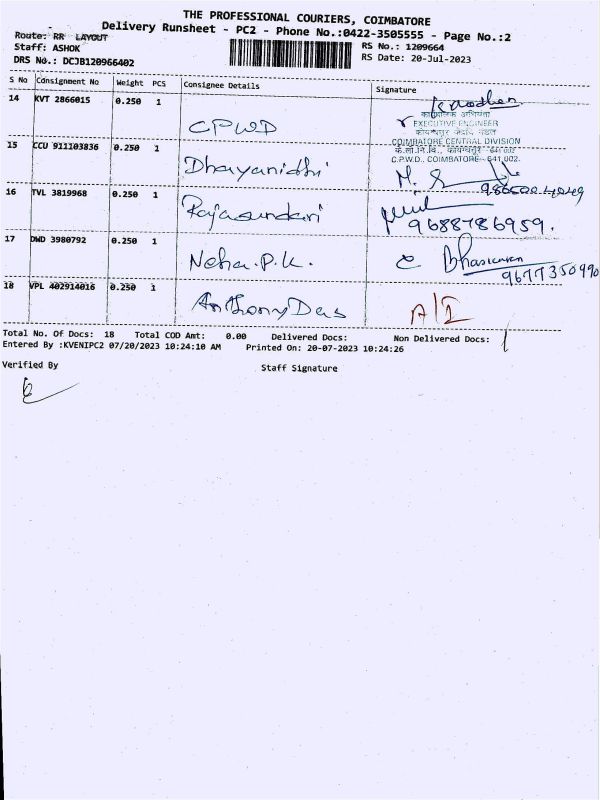 THE PROFESSIONAL COURIERS, COIMBATORE
Delivery Runsheet - PC2 - Phone No.:0422-3505555 - Page No.:2
Route: RR LAYOUT
RS No.: 1209664
Staff: ASHOK
RS Date: 20-Jul-2023
DRS No.: DCJB120966402
S No Consignment No Weight PCS Consignee Details Signature
14 KVT 2866015 0.250 1 CPWD
कार्यपालक अभियंता
EXECUTIVE ENGINEER
COIMBATORE CENTRAL DIVISION
C.P.W.D., COIMBATORE - 641 002.
15 CCU 911103836 0.250 1 Dhayanidhi
16 TVL 3819968 0.250 1 Rajasundari 9688786959.
17 DWD 3980792 0.250 1 Neha.P.K. Bhaskaran
9677350990
18 VPL 402914016 0.250 1 Anthony Das A/I
Total No. Of Docs: 18 Total COD Amt: 0.00 Delivered Docs: Non Delivered Docs: 1
Entered By :KVENIPC2 07/20/2023 10:24:10 AM Printed On: 20-07-2023 10:24:26
Verified By Staff Signature